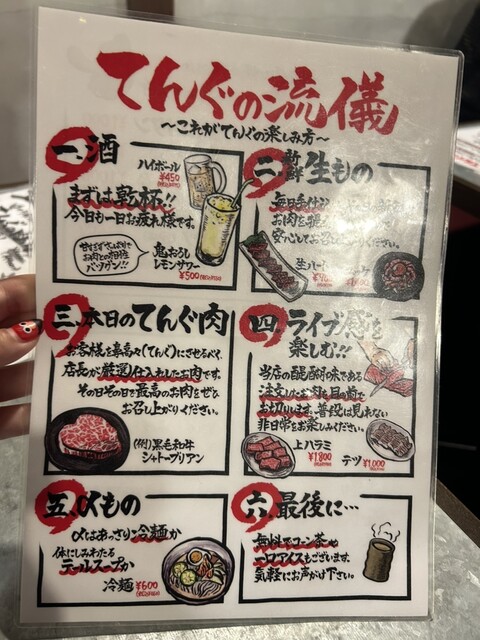 てんぐの流儀
～これがてんぐの楽しみ方～
一、酒
ハイボール
¥450
まずは乾杯!!
今日も一日お疲れ様です。
お肉との相性
バツグン!!
鬼おろし
レモンサワー
¥500
二、新鮮生もの
毎日手仕込
お肉を提
安心してお召し ください。
三、本日のてんぐ肉
お客様を鼻高々(てんぐ)にさせるべく、
店長が厳選仕入れしたお肉です。
その日その日の最高のお肉をぜひ
お召し上がりください。
(例)黒毛和牛
シャトーブリアン
四、ライブ感を
楽しむ!!
当店の醍醐味である
注文したお肉を目の前で
お切りします。普段は見れない
非日常をお楽しみください。
上ハラミ
¥1,800
テツ
¥1,000
五、〆もの
〆はあっさり冷麺か
体にしみわたる
テールスープか
冷麺
¥600
六、最後に…
無料でコーン茶や
アイスもございます。
気軽にお声がけ下さい。